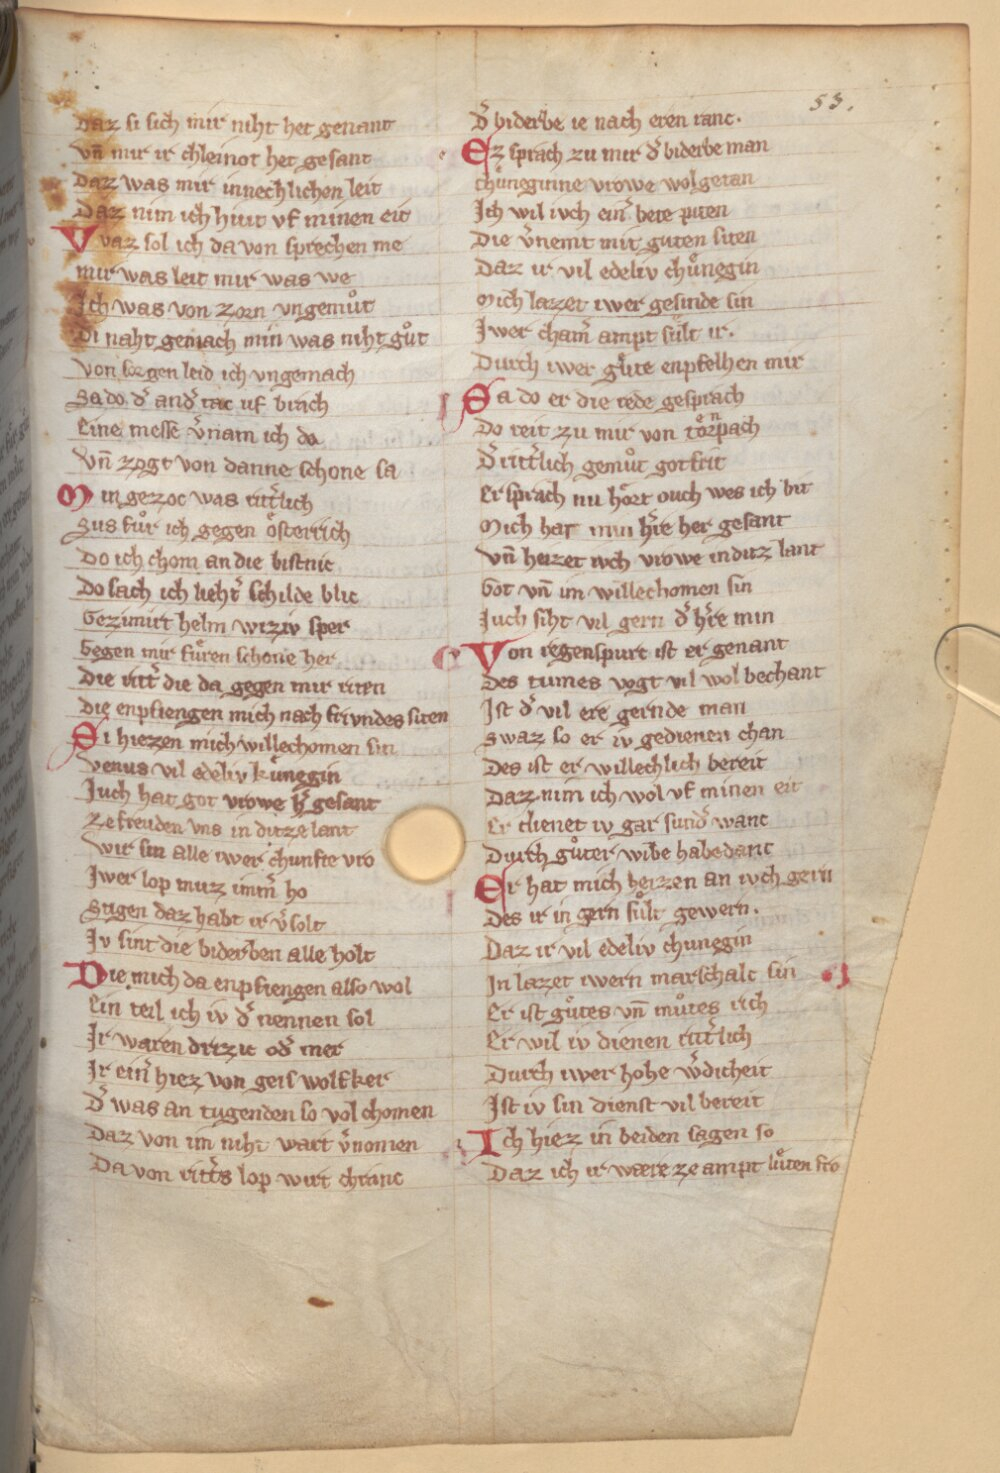 53.
Daz si sich mir niht het genant
Vn̄ mir ir chleinot het gesant
Daz was mir innechlichen leit
Daz nim ich hiut vf minen eit
Vvaz sol ich da von sprechen me
mir was leit mir was we
Ich was von zorn vngemuͦt
Di naht gemach min was niht guͦt
Von sorgen leid ich vngemach
Sa do d̓ and̓ tac uf brach
Eine messe v̓nam ich do
Vn̄ zogt von danne schone sa
Min gezoc was ritt̓lich
Sus fuͦr ich gegen oͤsterrich
Do ich chom an die bistnic
Do sach ich lieht̓ schilde blic
Gezimirt helm wiziv sper
Gegen mir fuͤren schone her
Die ritt̓ die da gegen mir riten
Die enpfiengen mich nach frivndes siten
Si hiezen mich willechomen sin
Venus vil edeliv kuͤnegin
Iuch hat got vrowe h̓ gesant
Ze freuden vns in ditze lant
Wir sin alle iwer chunfte vro
Iwer lop muz imm̄ ho
Stigen daz habt ir v̓solt
Iv sint die biderben alle holt
Die mich da enpfiengen also wol
Ein teil ich iv d̓ nennen sol
Ir waren drizic od̓ mer
Ir ein̓ hiez von geis wolfker
D̓ was an tugenden so vol chomen
Daz von im niht wart v̓nomen
Da von ritt̓s lop wirt chranc
D̓ byderbe ie nach eren ranc.
Ez sprach zu mir d̓ biderbe man
chuͤneginne vrowe wolgetan
Ich wil ivch ein̓ bete piten
Die v̓nemt mit guten siten
Daz ir vil edeliv chuͤnegin
Mich lazet iwer gesinde sin
Iwer cham̄ ampt suͤlt ir.
Durch iwer guͤte enpfelhen mir
Sa do er die rede gesprach
Do reit zu mir von toͤrnpach
D̓ ritt̓lich gemuͦt gotfrit
Er sprach nu hoͤrt ouch wes ich bit
Mich hat min h̓re her gesant
Vn̄ heizet ivch vrowe in ditz lant
Got vn̄ im willechomen sin
Iuch siht vil gern d̓ h̓re min
Von regenspurc ist er genant
Des tumes vogt vil wol bechant
Ist d̓ vil ere gernde man
Swaz so er iv gedienen chan
Des ist er willechlich bereit
Daz nim ich wol vf minen eit
Er dienet iv gar sund̓ wanc
Durch guͦter wibe habedanc
Er hat mich heizzen an ivch gern
Des ir in gern suͤlt gewern.
Daz ir vil edeliv chunegin
In lazet iwern marschalc sin
Er ist guͦtes vn̄ muͦtes rich
Er wil iv dienen ritt̓lich
Durch iwer hohe w̓dicheit
Ist iv sin dienst vil bereit
Ich hiez in beiden sagen so
Daz ich ir wære ze ampt luͤten fro